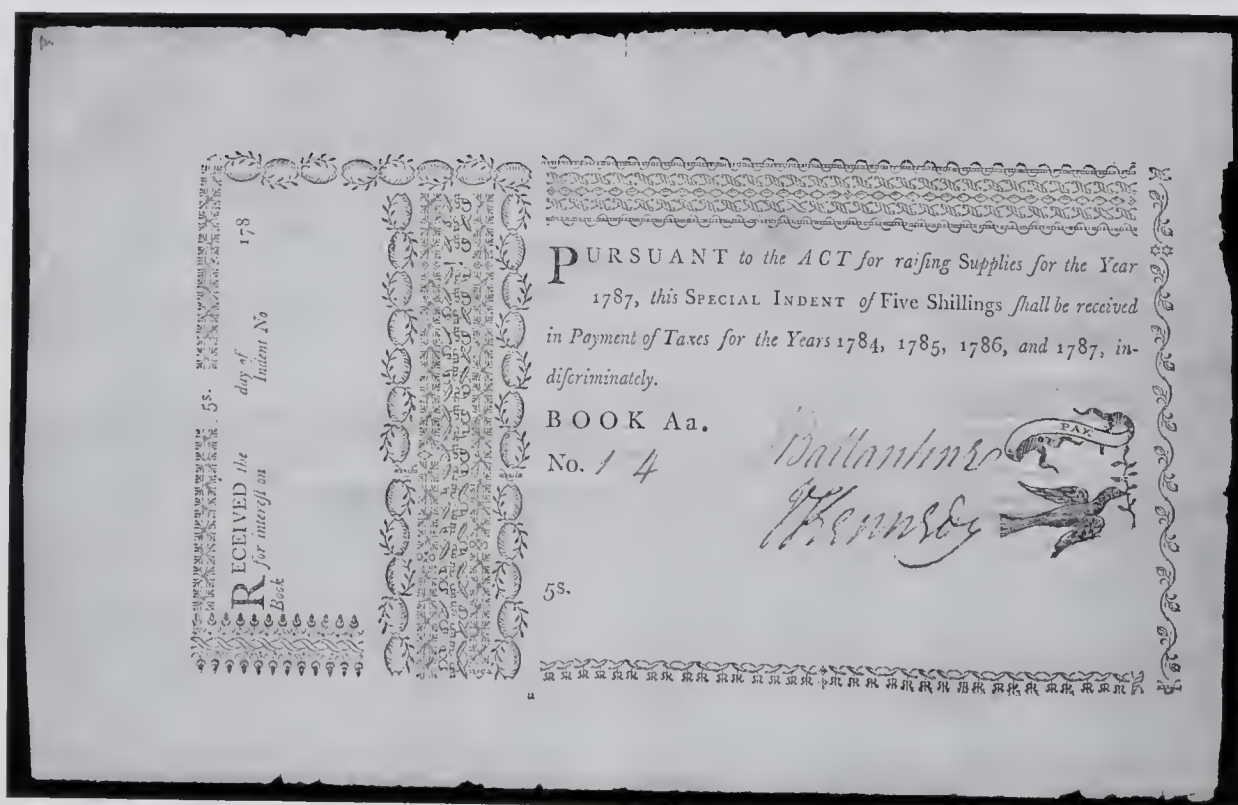 5s.
RECEIVED the day of 178
for intereſt on Indent No
Book
PURSUANT to the ACT for raiſing Supplies for the Year
1787, this SPECIAL INDENT of Five Shillings ſhall be received
in Payment of Taxes for the Years 1784, 1785, 1786, and 1787, in-
diſcriminately.
BOOK Aa.
No. 14
Ballantine
PAY
Kennedy
5s.